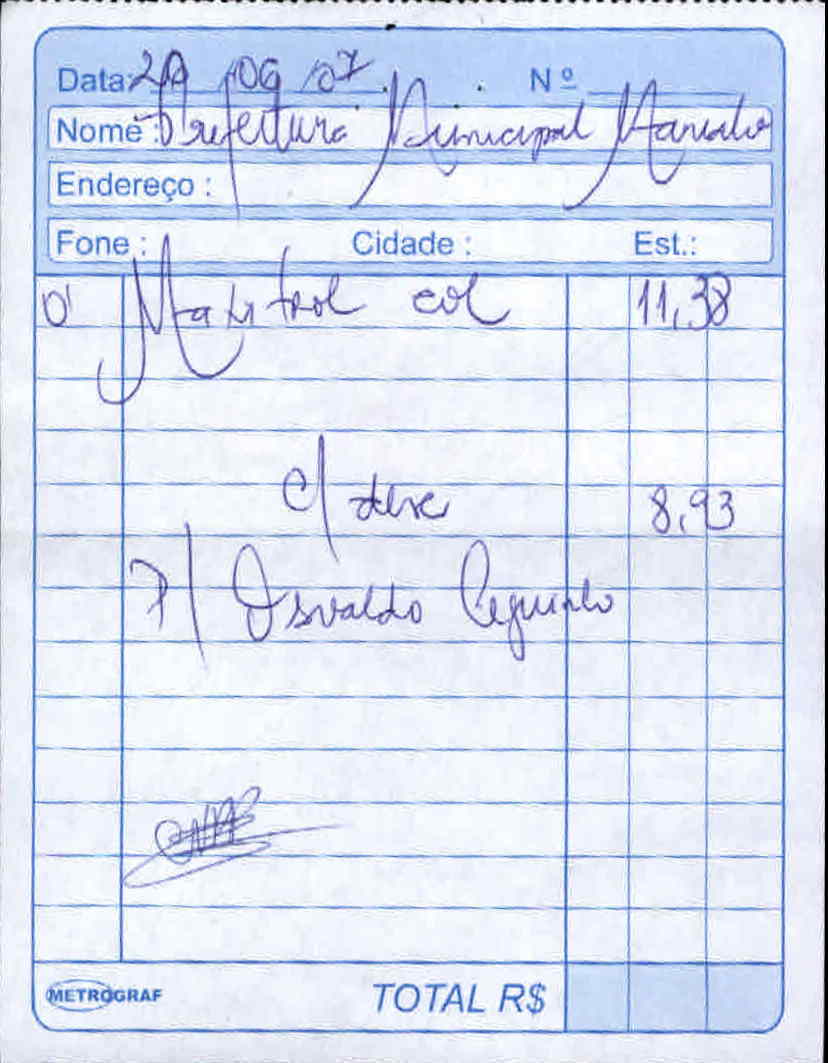 Data: 20 /09 /07 Nº
Nome: Prefeitura Municipal
Endereço :
Fone : Cidade : Est.:
01 Maxitrol col 11,38
c/ desc 8,93
P/ Osvaldo
METROGRAF TOTAL R$